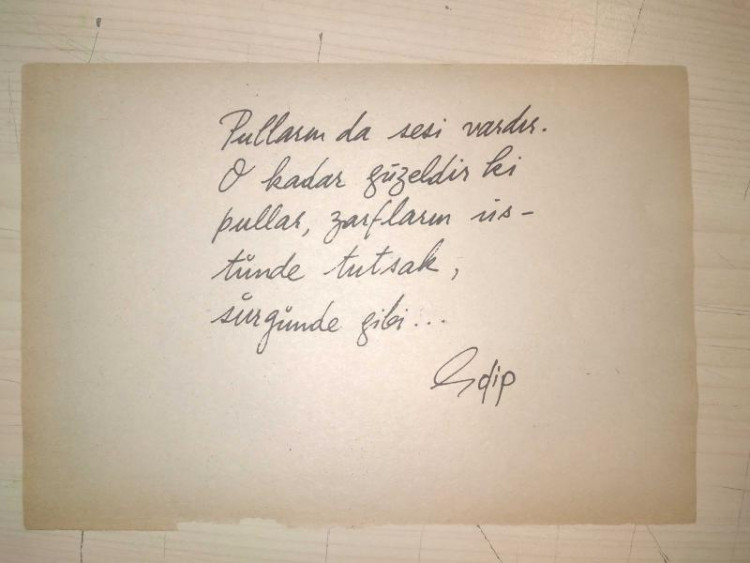 Pulların da sesi vardır.
O kadar güzeldir ki
pullar, zarfların üs-
tünde tutsak,
sürgünde gibi...
Edip